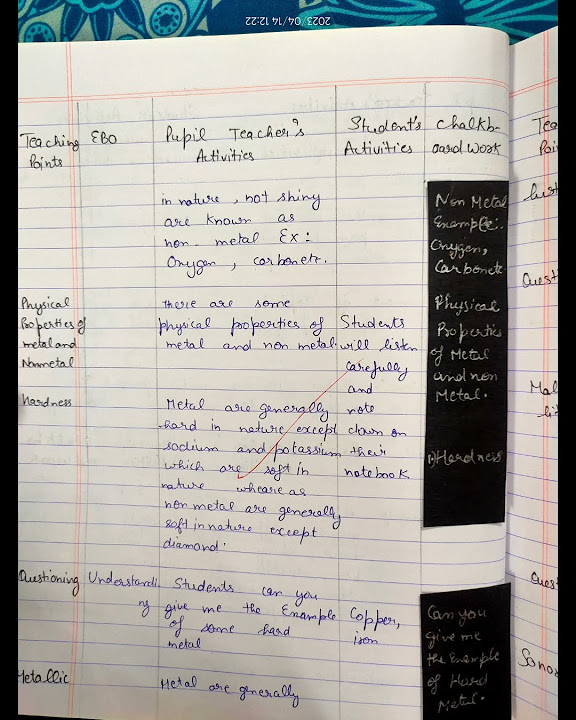 2023/04/14 12:22
Teaching Points
EBO
Pupil Teacher's Activities
Student's Activities
Chalkb-
oard work
in nature, not shiny
are known as
non-metal Ex:
Oxygen, carbonetc.
Non Metal
Example:
Oxygen,
Carbonetc
Physical
Properties of
metal and
Nonmetal
there are some
physical properties of
metal and non metal.
Students
will listen
carefully
and
note
down on
their
notebook
Physical
Properties
of Metal
and non
Metal.
Hardness
Metal are generally
hard in nature except
sodium and potassium
which are soft in
nature wheare as
non metal are generally
soft in nature except
diamond.
1) Hardness
Questioning
Understandi
ng
Students can you
give me the Example
of some hard
metal
Copper,
iron
Can you
give me
the Example
of Hard
Metal.
Metallic
Metal are generally
Tea
Poi
lust
Quest
Mal
Quest
Sono